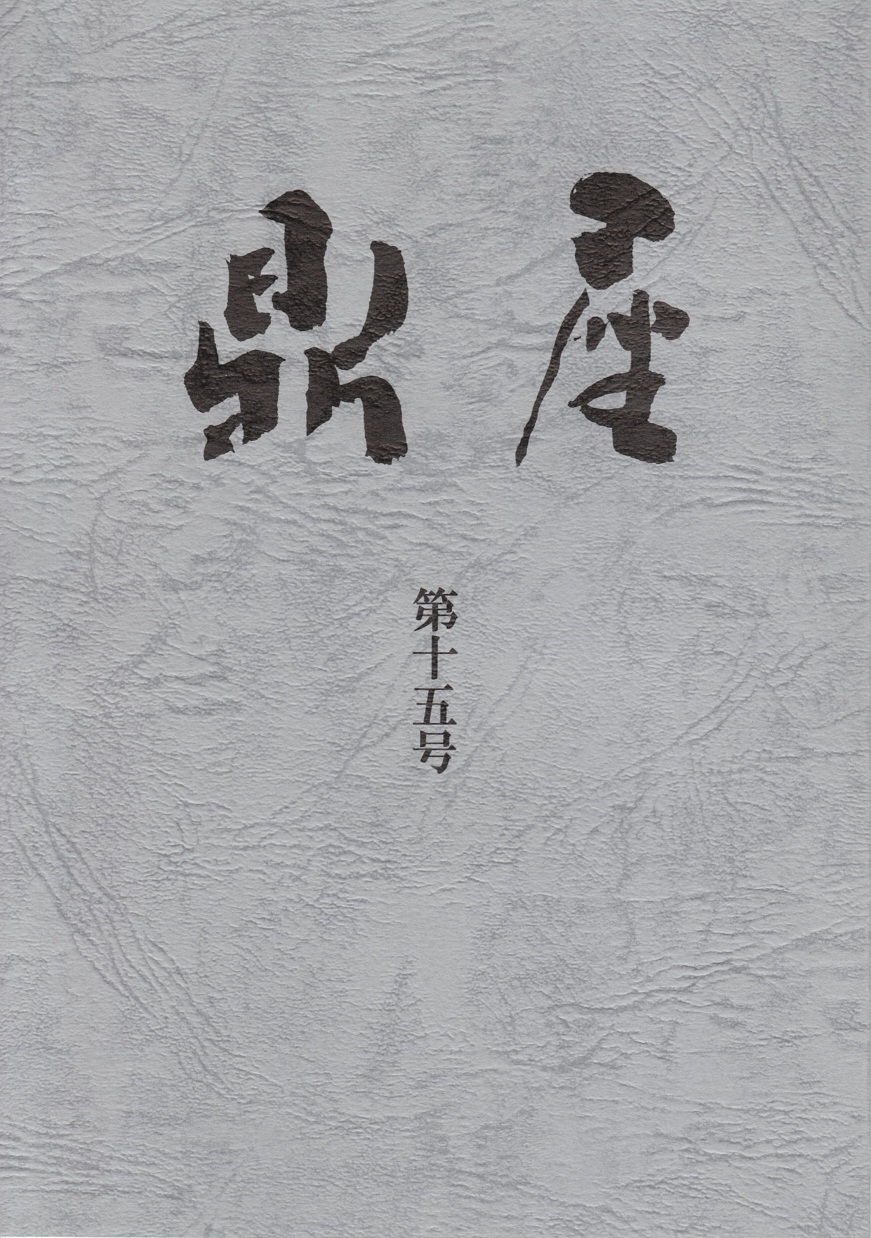 鼎座
第十五号